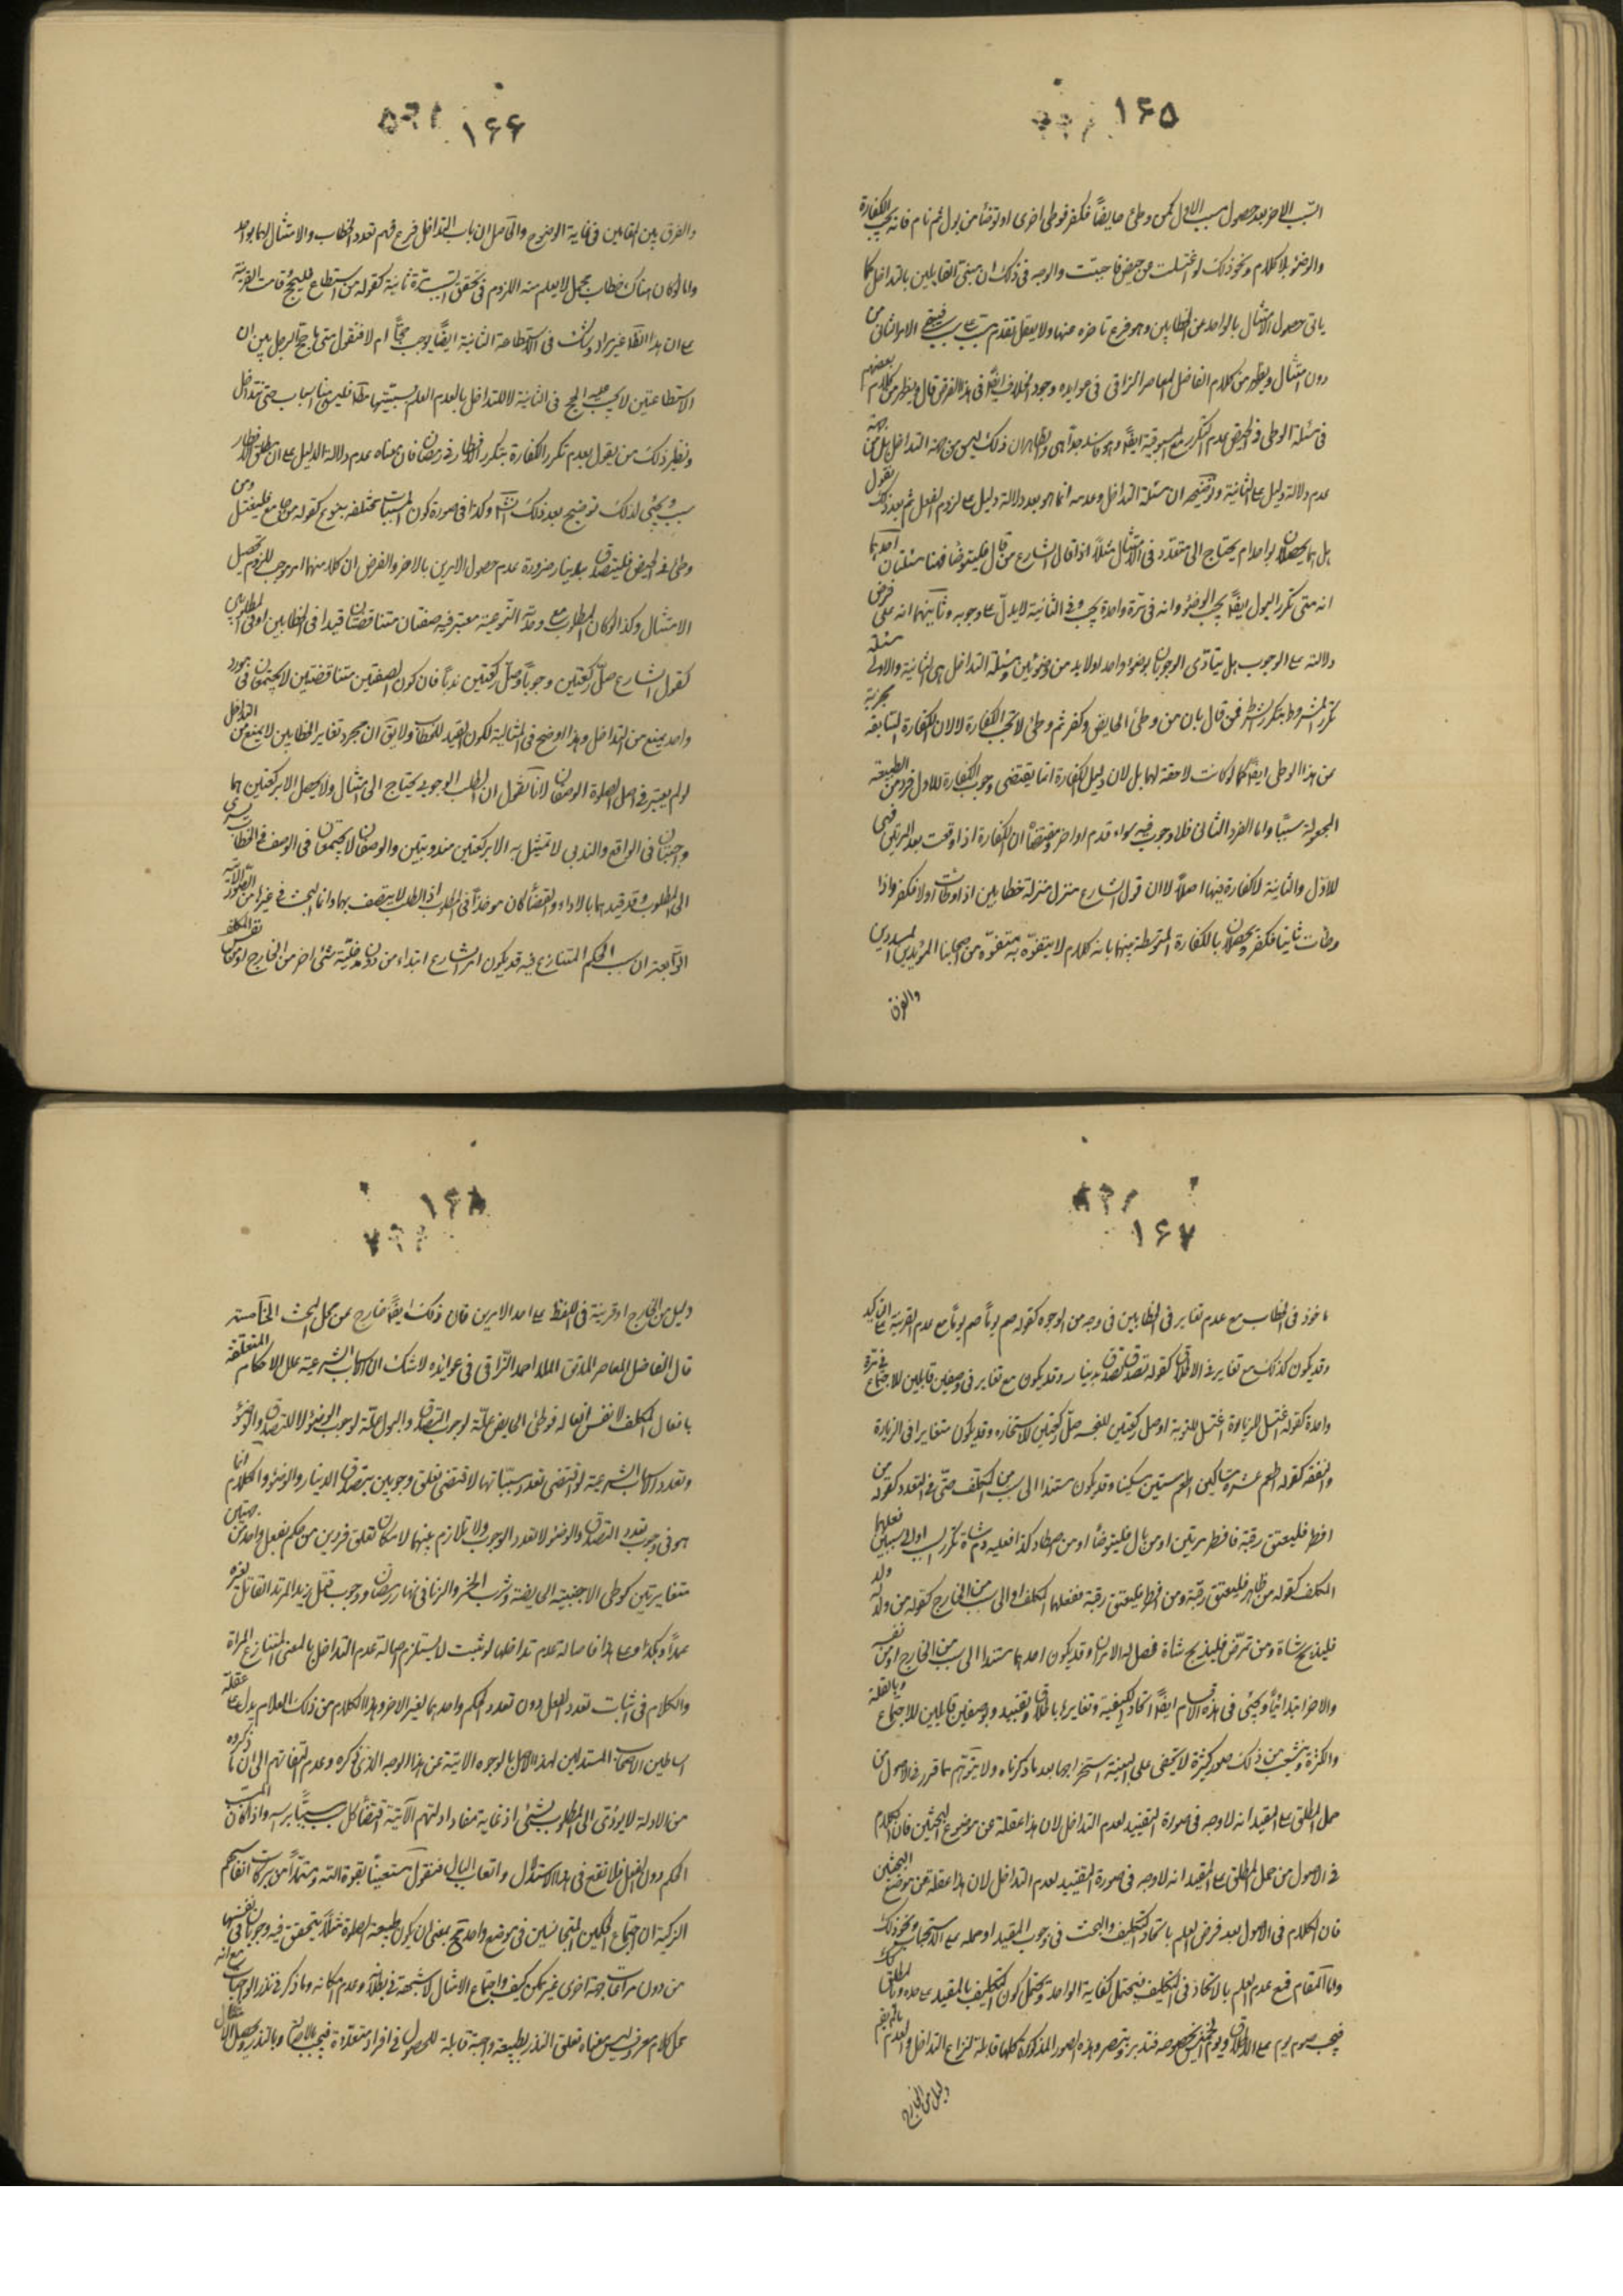 ۱۶۵
السبب الاخر بعد حصول سبب الاول كمن وطئ حايضاً فكفر فوطى اخرى او توضأ من بول ثم نام فانه يجب الكفارة
والوضوء بلا كلام ونحو ذلك لو اغتسلت من حيض فاجنبت والوجه فى ذلك ان مبنى القابلين بالتداخل كما
ياتى حصول الامتثال بالواحد عن الخطابين وهو فرع تاخره عنها ولا يعقل تقدم فيبقى الامر الثانى من
دون امتثال ويظهر من كلام الفاضل المعاصر النراقى فى عوايده وجود الخلاف ايضاً فى هذا الفرض قال ويظهر من كلام بعضهم
فى مسئلة الوطى فى الحيض عدم التكرر مع المسبوقية ايضاً وهو فاسد جداً انتهى وظاهر ان ذلك ليس من جهة التداخل بل من جهة
عدم دلالة دليل على الثانية وتوضيحه ان مسئلة التداخل وعدمه انما هو بعد دلالة دليل على لزوم الفعل ثم بعد ذلك نقول
بل هما يحصلان بواحد ام يحتاج الى متعدد فى الامتثال مثلاً اذا قال الشارع من بال فليتوضأ فهنا مسئلتان احديهما
انه متى تكرر البول ايضاً يجب الوضوء وانه فى مرة واحدة يجب وفى الثانية لا يدل على وجوبه وثانيتهما انه على فرض
دلالته على الوجوب بل يتادى الوجوبان بوضوء واحد او لا بد من وضوئين ومسئلة التداخل هى الثانية والاولى مسئلة
تكرر المشروط بتكرر الشرط فمن قال بان من وطئ الحايض وكفر ثم وطئ لا تجب الكفارة لا لان الكفارة السابقة مجزية
عن هذا الوطى ايضاً كما لو كانت لاحقة لهما بل لان دليل الكفارة انما يقتضى وجوب الكفارة للاول فرد من الطبيعة
المجعولة سبباً واما الفرد الثانى فلا وجوب فيه سواء قدم او اخر ومقتضاه ان الكفارة اذا وقعت بعد المرتين فهى
للاول والثانية لا كفارة فيها اصلاً لا ان قول الشارع منزل منزلة خطابين اذا وطأت اولا فكفر واذا
وطأت ثانيا فكفر ويحصلان بالكفارة المتوسطة بينهما بانه كلام لا يتفوه به متفوه من اصحابنا المؤيدين المسددين
والفرق
۱۶۶
والفرق بين المقامين فى غاية الوضوح والحاصل ان باب التداخل فرع فهم تعدد الخطاب والامتثال لهما بواحد
واما لو كان هناك خطاب مجمل لا يعلم منه اللزوم فى تحقق السبب مرة ثانية كقوله من استطاع فليحج وقامت القرينة
على ان هذا الكلام غير مراد وشك فى الاستطاعة الثانية ايضاً يوجب حجاً ام لا فنقول متى ما حج الرجل بين ان
الاستطاعتين لا يجب عليه الحج فى الثانية لا للتداخل بل لعدم العلم بسببيتها مطلقا فليس هنا اسباب حتى تتداخل
ونظير ذلك من يقول بعدم تكرر الكفارة بتكرر الافطار فى رمضان فان معناه عدم دلالة الدليل على ان مطلق الافطار
سبب ويجئ لذلك توضيح بعد ذلك انشاء الله وكذا فى صورة كون المسببات مختلفة بنوع كقوله من جامع فليغتسل ومن
وطئ فى الحيض فليتصدق بدينار ضرورة عدم حصول الامرين بالاخر والفرض ان كلا منهما امر موجب للزوم تحصيل
الامتثال وكذا لو كان المطلوب مع وحدته النوعية معتبر فيه صفتان متناقضتان قيدا فى الخطابين او فى المطلوبين
كقول الشارع صل ركعتين وجوباً وصل ركعتين ندباً فان كون الصفتين متناقضتين لا يجتمعان فى مورد
واحد يمنع من التداخل وهذا اوضح فى المثالية لكون القيد للخطاب ولا يق ان مجرد تغاير الخطابين لا يمنع من التداخل
لو لم يعتبر فى اصل الصلوة الوصفان لانا نقول ان الطلب الوجوبى يحتاج الى امتثال ولا يحصل الا بركعتين هما
واجبتان فى الواقع والندبى لا تمتثل به الا بركعتين مندوبتين والوصفان لا يجتمعان فى الوصف فى الخطاب يسرى
الى المطلوب وقد قيد هما بالاداء والقضاء كان موخذاً فى المطلوب اذ الطلب لا يتصف بهما وانما البحث فى غير هذه الصورة
الرابعة ان سبب الحكم المتنازع فيه قد يكون امر الشارع ابتداء من دون مدخلية شئ اخر من الخارج او نفس المكلف
۱۶۷
ماخوذ فى الخطاب مع عدم تغاير فى الخطابين فى وجه من الوجوه كقوله صم يوماً صم يوماً مع عدم القرينة على التاكيد
وقد يكون كذلك مع تغاير فى الاطلاق كقوله تصدق تصدق بدينار وقد يكون مع تغاير فى وصفين قابلين للاجتماع فى مرة
واحدة كقوله اغتسل للزيارة اغتسل للتوبة او صل ركعتين للتحية صل ركعتين للاستخارة وقد يكون متغايرا فى الزيادة
والنقص كقوله اطعم عشرة مساكين اطعم ستين مسكينا وقد يكون مستندا الى سبب من المكلف حتى فى التعدد كقوله من
افطر فليعتق رقبة فافطر مرتين او من بال فليتوضأ او من اصطاد كذا فعليه دم شاة تكرر السبب او الى سببين فعلهما
المكلف كقوله من ظاهر فليعتق رقبة ومن افطر فليعتق رقبة ففعلهما المكلف او الى سبب من الخارج كقوله من ولد له ولد
فليذبح شاة ومن تمرض فليذبح شاة فحصل له الامران وقد يكون احدهما مستندا الى سبب من الخارج او من نفسه
والاخر ابتدائياً ويجئ فى هذه الاقسام ايضاً اتحاد الكيفية وتغايرها باطلاق وتقييد وبوصفين قابلين للاجتماع وبالقلة
والكثرة ويتشعب من ذلك صور كثيرة لا يخفى على البصير استخراجها بعد ما ذكرناه ولا يتوهم ما قرر فى الاصول من
حمل المطلق على المقيد انه لا وجه فى صورة التقييد لعدم التداخل لان هذا غفلة عن موضوع البحثين فان الكلام
فى الاصول من حمل المطلق على المقيد انه لا وجه فى صورة التقييد لعدم التداخل لان هذا غفلة عن موضع البحثين
فان الكلام فى الاصول بعد فرض العلم باتحاد التكليف والبحث فى وجوب المقيد او حمله على الاستحباب ونحو ذلك
واما المقام فمع عدم العلم بالاتحاد فى التكليف فيحتمل كفاية الواحد ويحتمل كون التكليف بالمقيد على حدة وبالمطلق كك
فيجب صوم يوم على الاطلاق ويوم الخميس بخصوصه فتدبر وتبصر وهذه الصور المذكورة كلها قابلة لنزاع التداخل والعدم ما لم يقم
دليل من الخارج
۱۶۸
دليل من الخارج او قرينة فى اللفظ على احد الامرين فان ذلك ايضاً خارج عن محل البحث الخامسة
قال الفاضل المعاصر المدقق الملا احمد النراقى فى عوايده لا شك ان الاسباب الشرعية علل للاحكام المتعلقة
بافعال المكلف لا نفس افعاله فوطئ الحايض علة لوجوب التصدق والبول علة لوجوب الوضوء لا للتصدق والوضوء
وتعدد الاسباب الشرعية لو اقتضى تعدد مسبباتها لاقتضى تعلق وجوبين بتصدق الدينار والوضوء والكلام انما
هو فى وجوب تعدد التصدق والوضوء لا تعدد الوجوب ولا تلازم بينهما لامكان تعلق فردين من حكم بفعل واحد من جهتين
متغايرتين كوطى الاجنبية الحايضة وشرب الخمر والزنا فى نهار رمضان ووجوب قتل زيد المرتد القاتل لغيره
عمداً وهكذا وعلى هذا فاصالة عدم تداخلها لو ثبت لا يستلزم اصالة عدم التداخل بالمعنى المتنازع المراد
والكلام فى اثبات تعدد الفعل دون تعدد الحكم واحدهما يغير الاخر وهذا الكلام من ذلك العلام يدل على غفلة
اساطين الاصحاب المستدلين لهذا الاصل بالوجوه الاتية عن هذا الوجه الذى ذكره وعدم التفاتهم الى ان ما ذكروه
من الادلة لا يؤدى الى المطلوب بشئ اذ غاية مفاد ادلتهم الآتية اقتضاء كل سبب مسبباً براسه واذا كان المسبب
الحكم دون الفعل فلا نفع فى هذا الاستدلال واتعاب البال فنقول مستعيناً بقوة الله ومستمداً من بركات انفاسهم
الزكية ان اجتماع الحكمين المتجانسين فى موضع واحد قبيح بمعنى ان يكون طبيعة الصلوة مثلاً يتحقق فيه وجوبان فى نفسها
من دون مراعات جهة اخرى غير ممكن كيف واجتماع الامثال لا شبهة فى بطلانه وعدم امكانه وما ذكر فى نذر الواجبات مع انه
محل كلام معروف ليس معناه تعلق النذر بطبيعة واجبة قابلة للحصول فى افراد متعددة فيجب بالاصالة وبالنذر ويحصل الامتثال